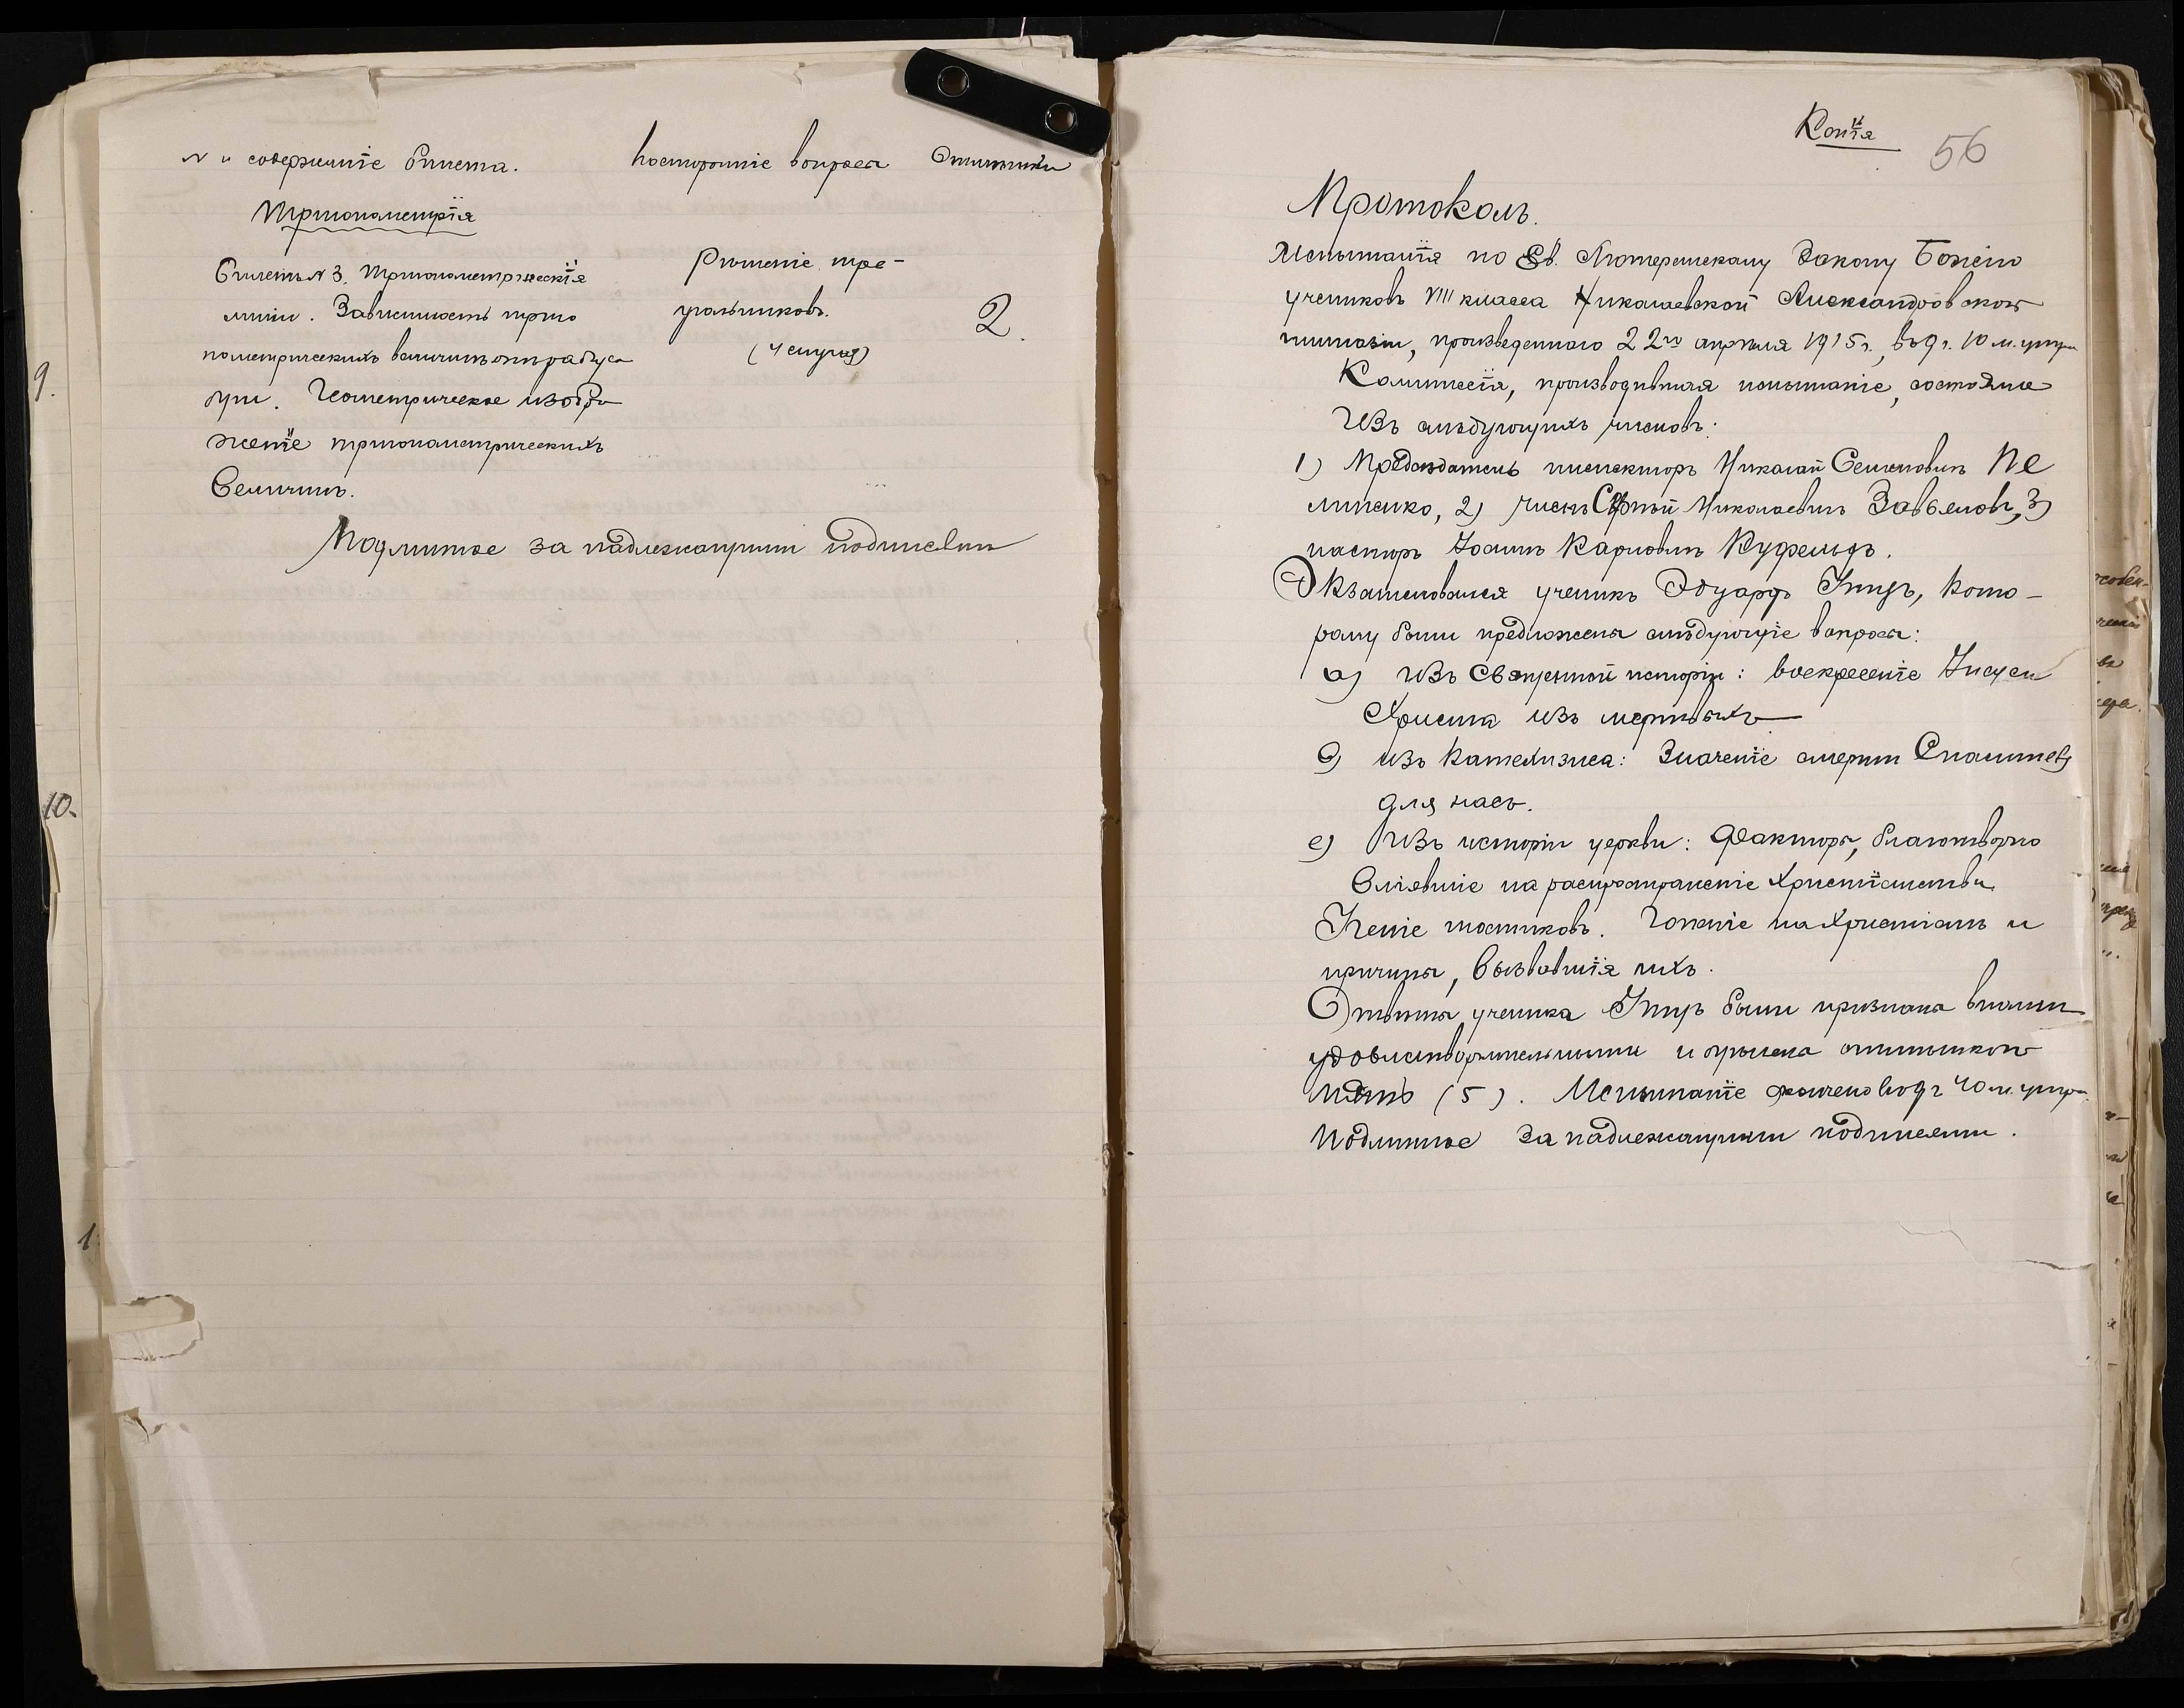 N и содержаніе билета.
Посторонніе вопросы
Отметки
Тригонометрія
Билетъ N 3. Тригонометрическія
линіи. Зависимость триго
нометрическихъ величинъ отъ радіуса
дуги. Геометрическое изобра
женіе тригонометрическихъ
величинъ.
Рѣшеніе тре-
угольниковъ.
(4 случая)
2.
Подлинное за надлежащими подписями
9.
10.
1
Копія
56
Протоколъ.
Испытанія по Ев. Лютеранскому Закону Божію
учениковъ VIII класса Николаевской Александровской
гимназіи, произведеннаго 22го апрѣля 1915 г., въ 9 г. 10 м. утра
Коммиссія, производившая испытаніе, состояла
изъ слѣдующихъ членовъ:
1) Предсѣдатель инспекторъ Николай Семеновичъ Пе
липенко, 2) членъ Сергѣй Николаевичъ Завьяловъ, 3)
пасторъ Іоаннъ Карловичъ Куфельдъ.
Экзаменовался ученикъ Эдуардъ, кото-
рому были предложены слѣдующіе вопросы:
а) изъ Священной исторіи: воскресеніе Іисуса
Христа изъ мертвыхъ
б) изъ Катехизиса: Значеніе смерти Спасителя
для насъ.
с) Изъ исторіи церкви: Факторы, благотворно
вліявшіе на распространеніе Христіанства.
Ученіе гностиковъ. Гоненіе на Христіанъ и
причины, вызвавшія ихъ.
Отвѣты ученика были признаны вполнѣ
удовлетворительными и оцѣнены отмѣткою
пять (5). Испытаніе окончено въ 9 г 40 м. утра.
Подлинное за надлежащими подписями.